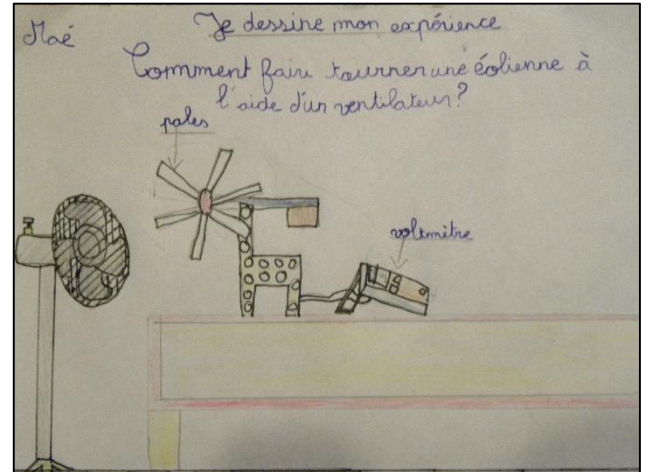 Maé
Je dessine mon expérience
Comment faire tourner une éolienne à
l'aide d'un ventilateur?
pales
voltmètre